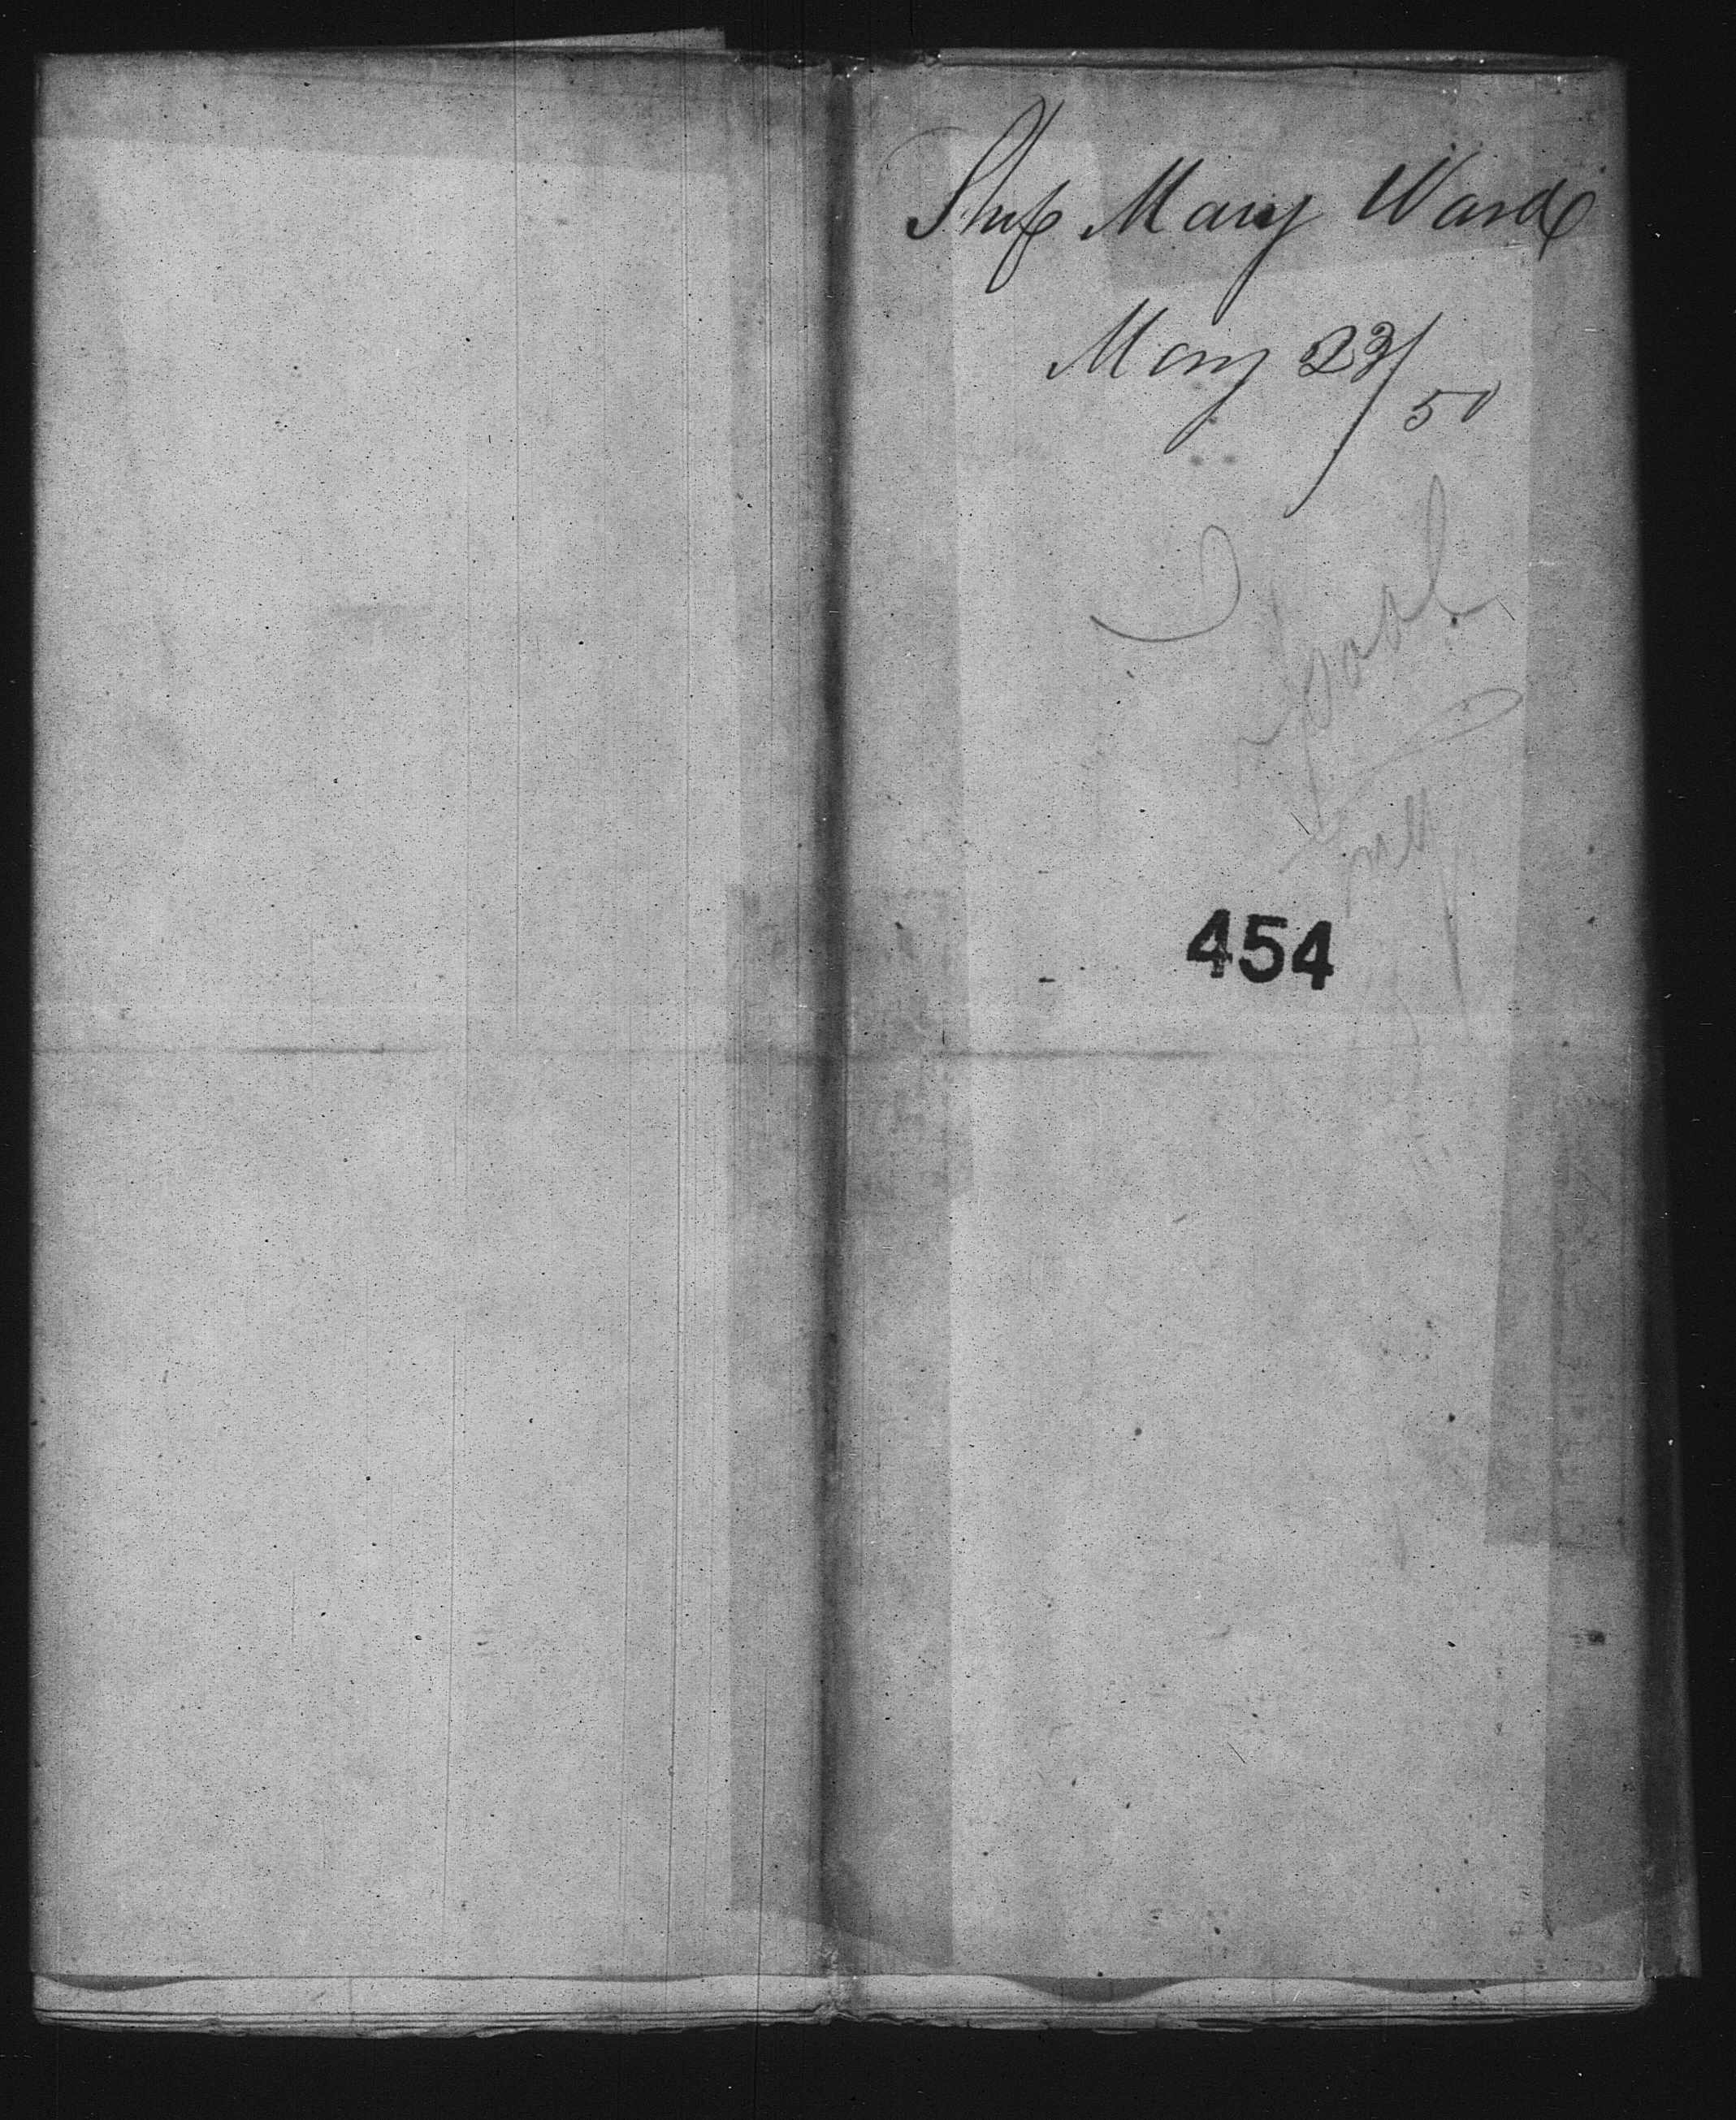 Ship Mary Ward
May 23/50
454